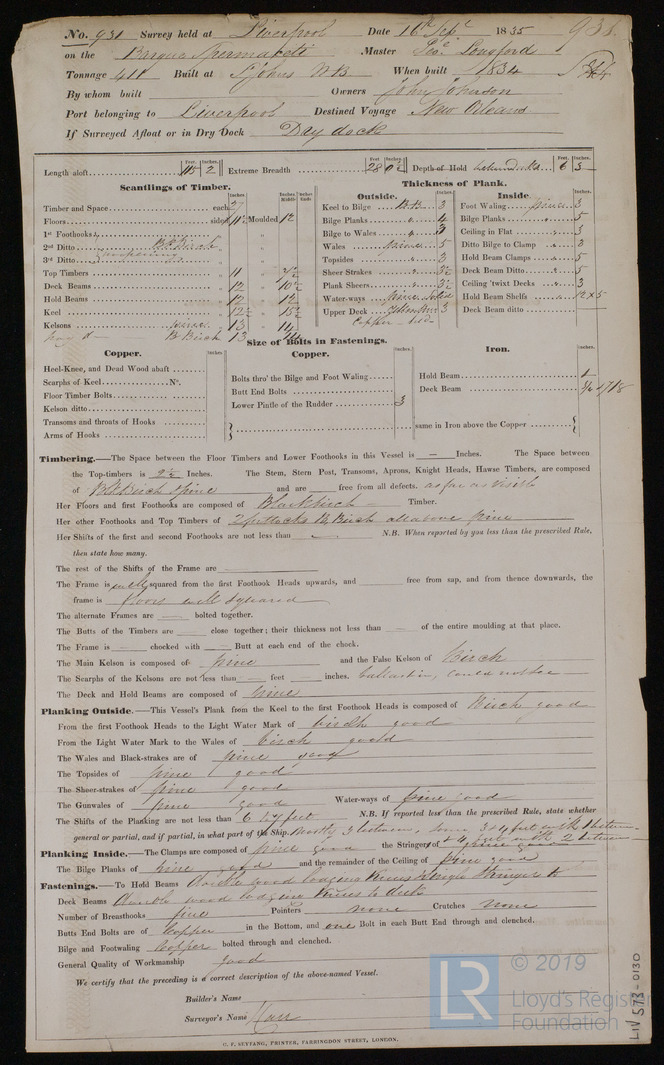 No. 931 Survey held at Liverpool Date 16th Sept 1835 938
on the Barque Spermaceti Master Geo. Longford
Tonnage 411 Built at St Johns NB When built 1834
By whom built Owners John Johnson
Port belonging to Liverpool Destined Voyage New Orleans
If Surveyed Afloat or in Dry Dock Dry dock
Feet. Inches. Feet. Inches. Feet. Inches.
Length aloft 115 2 Extreme Breadth 28 0½ Depth of Hold between Decks 6 3
Scantlings of Timber. Thickness of Plank.
Inches Inches Middle Inches Ends Outside. Inches. Inside. Inches.
Timber and Space each 27 Keel to Bilge 3 Foot Waling pine 3
Floors sided 11½ Moulded 12 Bilge Planks 4 Bilge Planks 5
1st Foothooks Bilge to Wales 3 Ceiling in Flat 3
2nd Ditto B Birch Wales pine 5 Ditto Bilge to Clamp 3
3rd Ditto Topsides 3 Hold Beam Clamps 5
Top Timbers 11 7½ Sheer Strakes 3½ Deck Beam Ditto 5
Deck Beams 12 10½ Plank Sheers 3½ Ceiling 'twixt Decks 3
Hold Beams 12 12 Water-ways pine Hold Beam Shelfs 12 x 5
Keel 12½ 15½ Upper Deck 3 Deck Beam ditto
Kelsons pine 13 14
B Birch 13 14
Size of Bolts in Fastenings.
Copper. Inches Copper. Inches Iron. Inches.
Heel-Knee, and Dead Wood abaft
Scarphs of Keel No. Bolts thro' the Bilge and Foot Waling Hold Beam 1
Floor Timber Bolts Butt End Bolts Deck Beam ¾ & 7/8
Kelson ditto Lower Pintle of the Rudder 3
Transoms and throats of Hooks same in Iron above the Copper
Arms of Hooks
Timbering.—The Space between the Floor Timbers and Lower Foothooks in this Vessel is — Inches. The Space between
the Top-timbers is 2½ Inches. The Stem, Stern Post, Transoms, Aprons, Knight Heads, Hawse Timbers, are composed
of B Birch & pine and are free from all defects. as far as visible
Her Floors and first Foothooks are composed of Black birch Timber.
Her other Foothooks and Top Timbers of 2 futtocks B. Birch all above pine
Her Shifts of the first and second Foothooks are not less than N.B. When reported by you less than the prescribed Rule,
then state how many.
The rest of the Shifts of the Frame are
The Frame is well squared from the first Foothook Heads upwards, and free from sap, and from thence downwards, the
frame is floors well squared
The alternate Frames are bolted together.
The Butts of the Timbers are close together; their thickness not less than of the entire moulding at that place.
The Frame is chocked with Butt at each end of the chock.
The Main Kelson is composed of pine and the False Kelson of Birch
The Scarphs of the Kelsons are not less than feet inches. ballast in, could not see
The Deck and Hold Beams are composed of pine
Planking Outside.—This Vessel's Plank from the Keel to the first Foothook Heads is composed of Birch good
From the first Foothook Heads to the Light Water Mark of birch good
From the Light Water Mark to the Wales of birch good
The Wales and Black-strakes are of pine good
The Topsides of pine good
The Sheer-strakes of pine good
The Gunwales of pine good Water-ways of pine good
The Shifts of the Planking are not less than 6 to 4 feet N.B. If reported less than the prescribed Rule, state whether
general or partial, and if partial, in what part of the Ship. Mostly 3 between, some 3 & 4 feet with 1 between
& 4 feet with 2 between
Planking Inside.—The Clamps are composed of pine good the Stringers of pine good
The Bilge Planks of pine good and the remainder of the Ceiling of pine good
Fastenings.—To Hold Beams Double wood lodging knees
Deck Beams Double wood lodging knees to deck
Number of Breasthooks five Pointers none Crutches none
Butts End Bolts are of Copper in the Bottom, and one Bolt in each Butt End through and clenched.
Bilge and Footwaling Copper bolted through and clenched.
General Quality of Workmanship good
We certify that the preceding is a correct description of the above-named Vessel.
Builder's Name
Surveyor's Name
C. F. SEYFANG, PRINTER, FARRINGDON STREET, LONDON.
LR © 2019
Lloyd's Register
Foundation
LIV 573-0130